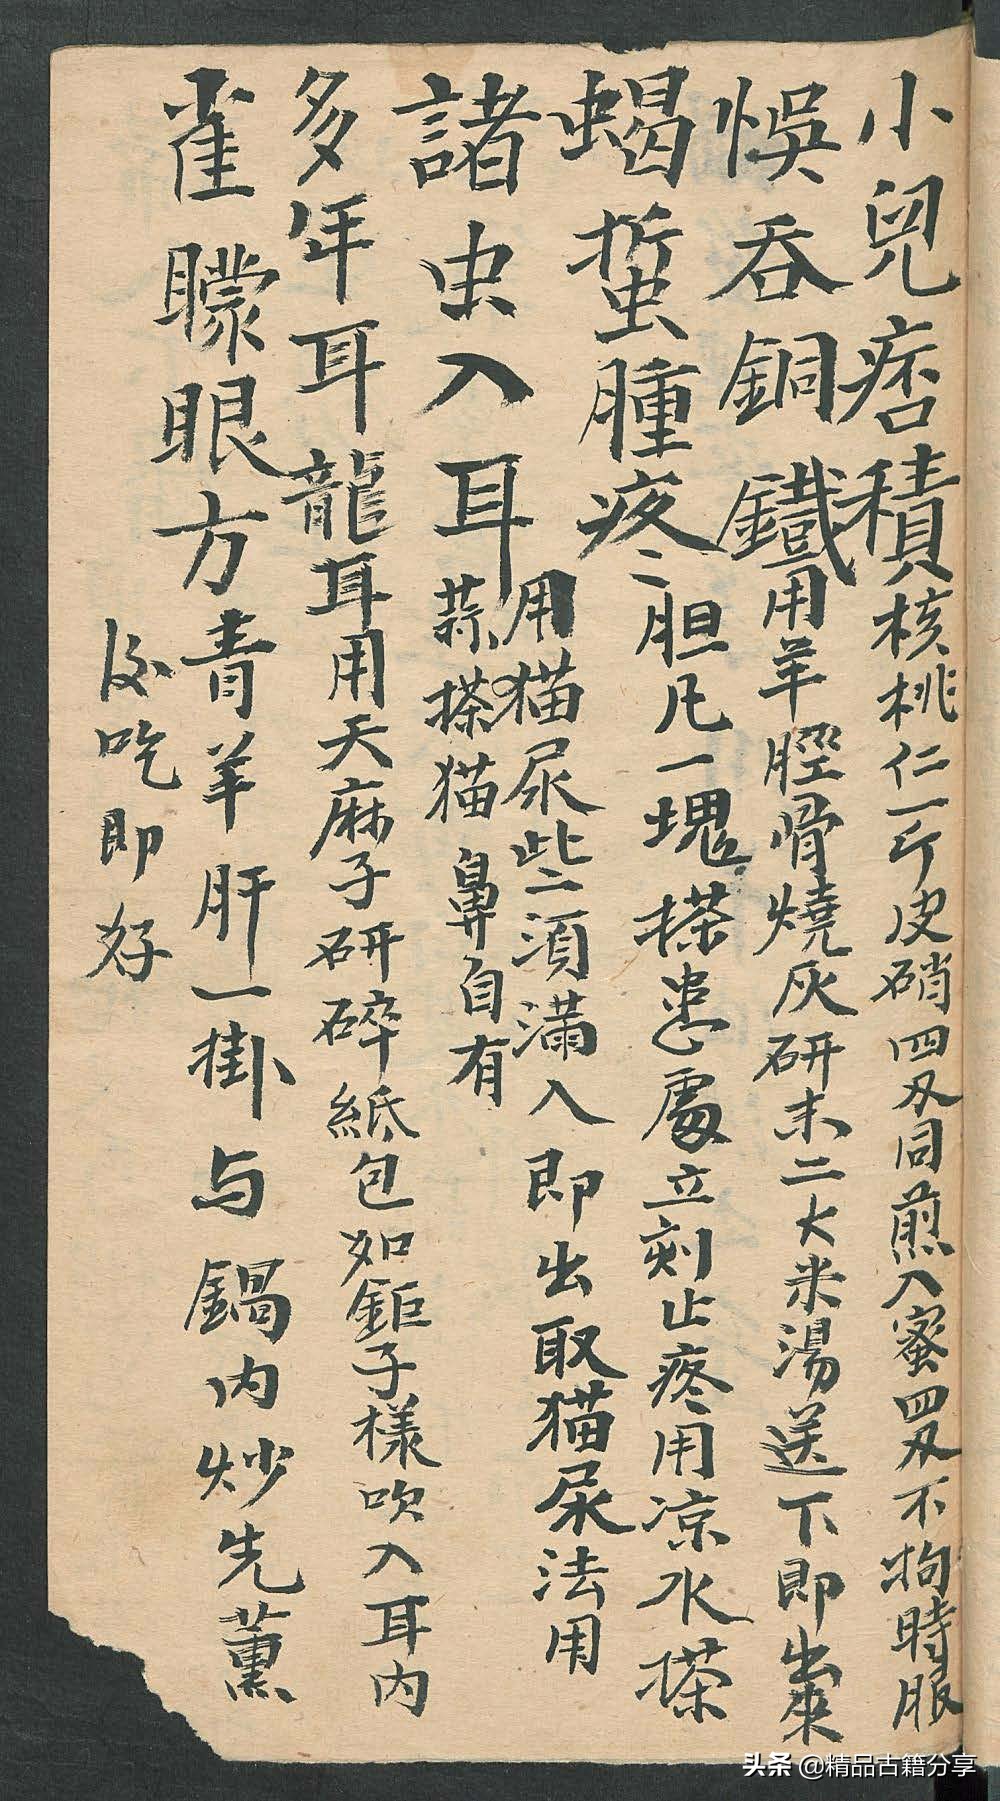 小兒痞積核桃仁一斤皮硝四両同煎入蜜四両不拘時服
悞吞銅鐵用羊脛骨燒灰研末二大米湯送下即出來
蝎蜇腫疼二胆凡一塊搽患處立刻止疼用凉水搽
諸虫入耳用猫尿些二須滿入即出取猫尿法用
蒜搽猫鼻自有
多年耳龍耳用天麻子研碎紙包如鉅子樣吹入耳内
雀矇眼方青羊肝一掛与鍋内炒先薰
後吃即好
头条 @精品古籍分享